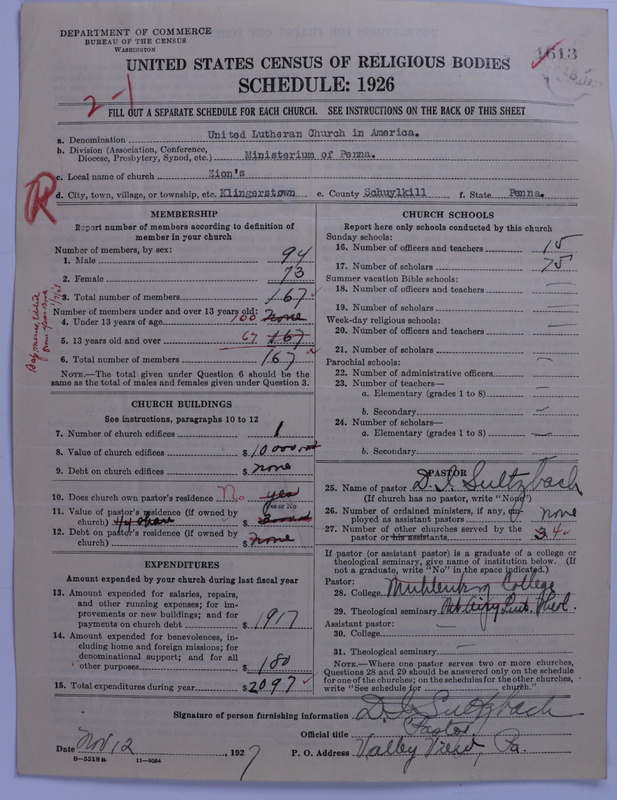 DEPARTMENT OF COMMERCE
BUREAU OF THE CENSUS
WASHINGTON
1613
UNITED STATES CENSUS OF RELIGIOUS BODIES
SCHEDULE: 1926
2-1
FILL OUT A SEPARATE SCHEDULE FOR EACH CHURCH. SEE INSTRUCTIONS ON THE BACK OF THIS SHEET
a. Denomination United Lutheran Church in America.
b. Division (Association, Conference,
Diocese, Presbytery, Synod, etc.) Ministerium of Penna.
c. Local name of church Zion's
d. City, town, village, or township, etc. Klingerstown e. County Schuylkill f. State Penna.
R
MEMBERSHIP
Report number of members according to definition of
member in your church
Number of members, by sex:
1. Male 94
2. Female 73
3. Total number of members 167
Number of members under and over 13 years old:
4. Under 13 years of age 100 none
5. 13 years old and over 67 167
6. Total number of members 167
NOTE.—The total given under Question 6 should be the
same as the total of males and females given under Question 3.
CHURCH BUILDINGS
See instructions, paragraphs 10 to 12
7. Number of church edifices 1
8. Value of church edifices $ 10000.00
9. Debt on church edifices $ none
10. Does church own pastor's residence No yes
Yes or No
11. Value of pastor's residence (if owned by
church) 1/4 share $
12. Debt on pastor's residence (if owned by
church) $ none
EXPENDITURES
Amount expended by your church during last fiscal year
13. Amount expended for salaries, repairs,
and other running expenses; for im-
provements or new buildings; and for
payments on church debt $ 1917
14. Amount expended for benevolences, in-
cluding home and foreign missions; for
denominational support; and for all
other purposes $ 180
15. Total expenditures during year $ 2097
CHURCH SCHOOLS
Report here only schools conducted by this church
Sunday schools:
16. Number of officers and teachers 15
17. Number of scholars 75
Summer vacation Bible schools:
18. Number of officers and teachers —
19. Number of scholars —
Week-day religious schools:
20. Number of officers and teachers —
21. Number of scholars
Parochial schools: —
22. Number of administrative officers
23. Number of teachers—
a. Elementary (grades 1 to 8) —
b. Secondary —
24. Number of scholars—
a. Elementary (grades 1 to 8) —
b. Secondary —
PASTOR
25. Name of pastor D. I. Sultzbach
(If church has no pastor, write "None")
26. Number of ordained ministers, if any, em-
ployed as assistant pastors none
27. Number of other churches served by the
pastor or his assistants 3 4
If pastor (or assistant pastor) is a graduate of a college or
theological seminary, give name of institution below. (If
not a graduate, write "No" in the space indicated.)
Pastor:
28. College Muhlenberg College
29. Theological seminary Luth.
Assistant pastor:
30. College —
31. Theological seminary —
NOTE.—Where one pastor serves two or more churches,
Questions 28 and 29 should be answered only on the schedule
for one of the churches; on the schedules for the other churches,
write "See schedule for church."
Signature of person furnishing information D. I. Sultzbach
Official title Pastor
Date Nov 12, 1927 P. O. Address Valley View, Pa.
8-5518a 11-9034